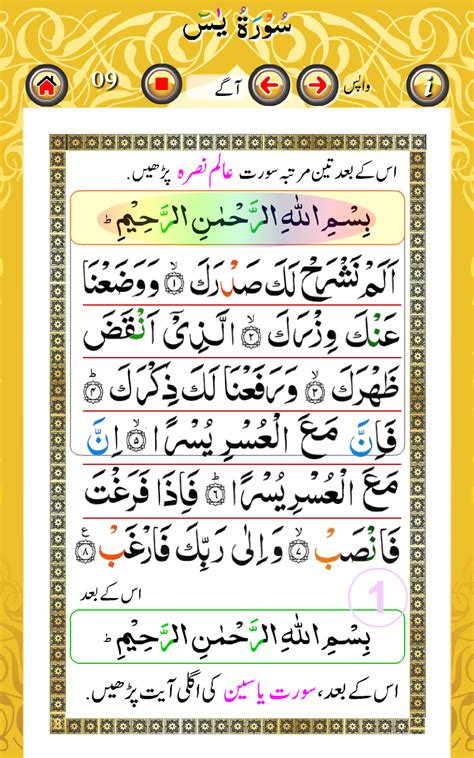 سُوْرَةُ يٰسٓ
09
آگے
واپس
i
اس کے بعد تین مرتبہ سورت عالم نصرہ پڑھیں.
بِسْمِ اللهِ الرَّحْمٰنِ الرَّحِيْمِ ؕ
اَلَمْ نَشْرَحْ لَكَ صَدْرَكَ ۝۱ وَوَضَعْنَا
عَنْكَ وِزْرَكَ ۝۲ الَّذِىْٓ اَنْقَضَ
ظَهْرَكَ ۝۳ وَرَفَعْنَا لَكَ ذِكْرَكَ ؕ۝۴
فَاِنَّ مَعَ الْعُسْرِ يُسْرًا ۝۵ اِنَّ
مَعَ الْعُسْرِ يُسْرًا ؕ۝۶ فَاِذَا فَرَغْتَ
فَانْصَبْ ۝۷ وَاِلٰى رَبِّكَ فَارْغَبْ ۝۸
اس کے بعد
1
بِسْمِ اللهِ الرَّحْمٰنِ الرَّحِيْمِ ؕ
اس کے بعد، سورت یاسین کی اگلی آیت پڑھیں.